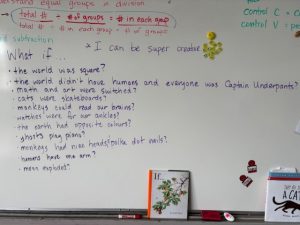 understand equal groups in division
total # = # of groups ÷ # in each group
total # ÷ # of groups = # in each group
subtraction
* I can be super creative
Control C =
Control V =
What if...
• the world was square?
• the world didn't have humans and everyone was Captain Underpants?
• math and art were switched?
• cats were skateboards?
• monkeys could read our brains?
• watches were for our ankles?
• the earth had opposite colours?
• ghosts play piano?
• monkeys had nine heads/polka dot nails?
• humans have one arm?
• mean
If
A CAT